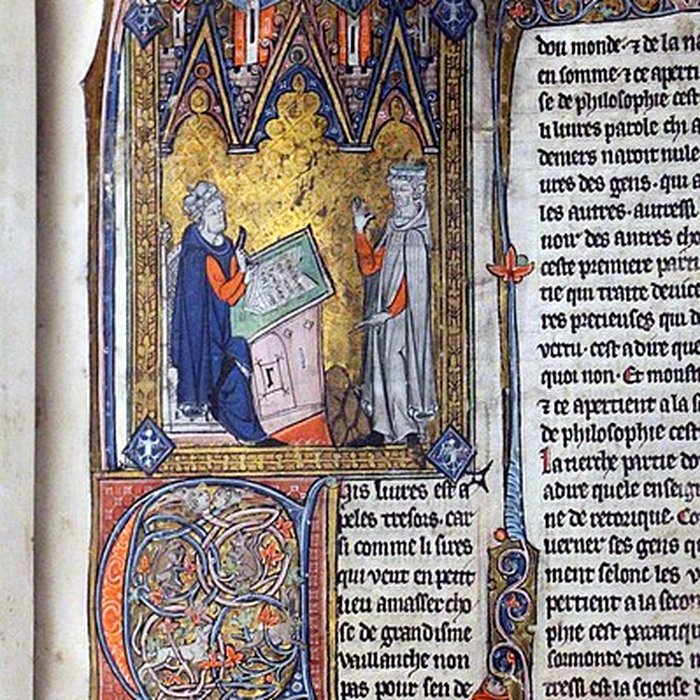 Cis liures est a
peles tresors. car
si comme li sires
qui veut en petit
lieu amasser cho
se de grandisme
vaillanche non
pas pour sen de
dou monde. ⁊ de la na
en somme. ⁊ ce aperti
se de philosophie cest
li liures parole chi a
deniers naroit nule
ures des gens. qui a
les autres. autressi
noir des autres cho
ceste premiere parti
tie qui traite
res precieuses qui d
vertu. cest a dire que
quoi non. Et monst
⁊ ce apertient a la s
de philosophie cest
La tierche partie do
a dire quele enseign
ne de retorique. Co
uerner ses gens
ment selonc les
pertient a la secon
phie cest pratiqu
sormonte toutes
tressi est la sciense